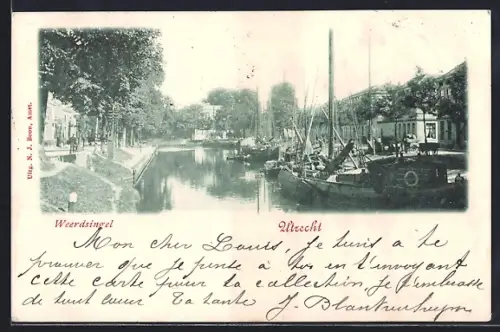 Uitg. N. J. Boon, Amst.
Weerdsingel
Utrecht
Mon cher Louis, Je tiens a te
prouver que je pense à toi en t'envoyant
cette carte pour ta collection. Je t'embrasse
de tout cœur Ta tante J. Blankenheym